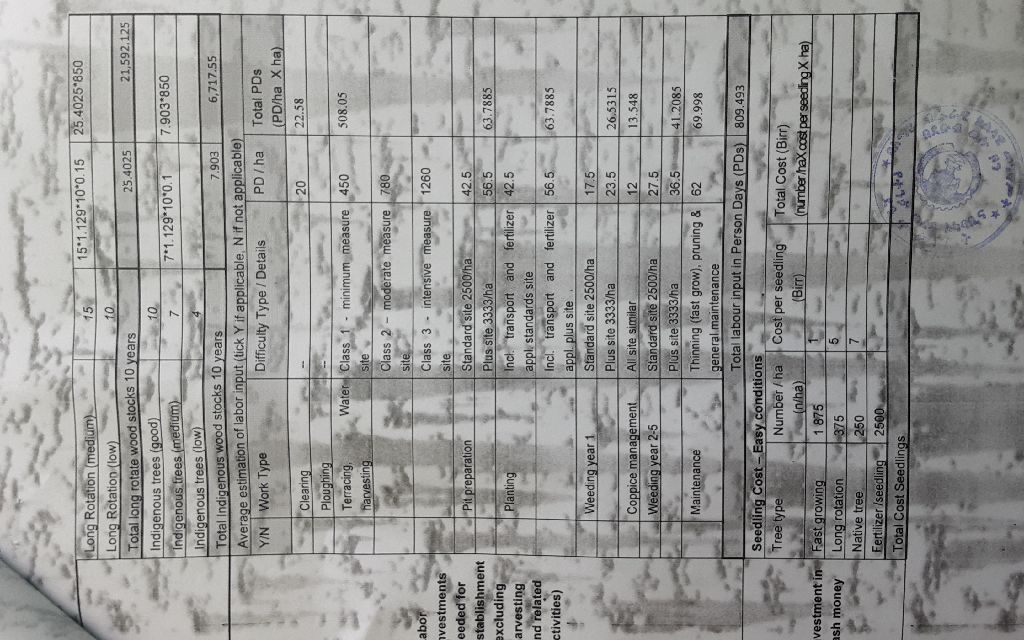 Long Rotation (medium) 15 15*1.129*10*0.15 25.4025*850
Long Rotation (low) 10
Total long rotate wood stocks 10 years 25.4025 21,592.125
Indigenous trees (good) 10
Indigenous trees (medium) 7 7*1.129*10*0.1 7.903*850
Indigenous trees (low) 4
Total Indigenous wood stocks 10 years 7.903 6,717.55
Average estimation of labor input (tick Y if applicable, N if not applicable)
Y/N Work Type Difficulty Type / Details PD / ha Total PDs
(PD/ha X ha)
Clearing -- 20 22.58
Ploughing --
Terracing, Water Class 1 - minimum measure 450 508.05
harvesting site
Class 2 - moderate measure 780
site
Class 3 - intensive measure 1260
site
Pit preparation Standard site 2500/ha 42.5
Plus site 3333/ha 56.5 63.7885
Planting Incl. transport and fertilizer 42.5
appl. standards site
Incl. transport and fertilizer 56.5 63.7885
appl. plus site
Weeding year 1 Standard site 2500/ha 17.5
Plus site 3333/ha 23.5 26.5315
Coppice management All site similar 12 13.548
Weeding year 2-5 Standard site 2500/ha 27.5
Plus site 3333/ha 36.5 41.2085
Maintenance Thinning (fast grow), pruning & 62 69.998
general maintenance
Total labour input in Person Days (PDs) 809.493
abor
nvestments
eeded for
stablishment
excluding
arvesting
nd related
ctivities)
Seedling Cost – Easy conditions
Tree type Number / ha Cost per seedling Total Cost (Birr)
(n/ha) (Birr) (number/ha X cost per seedling X ha)
Fast growing 1 875 1
Long rotation 375 5
Native tree 250 7
Fertilizer/seedling 2500
Total Cost Seedlings
vestment in
ash money